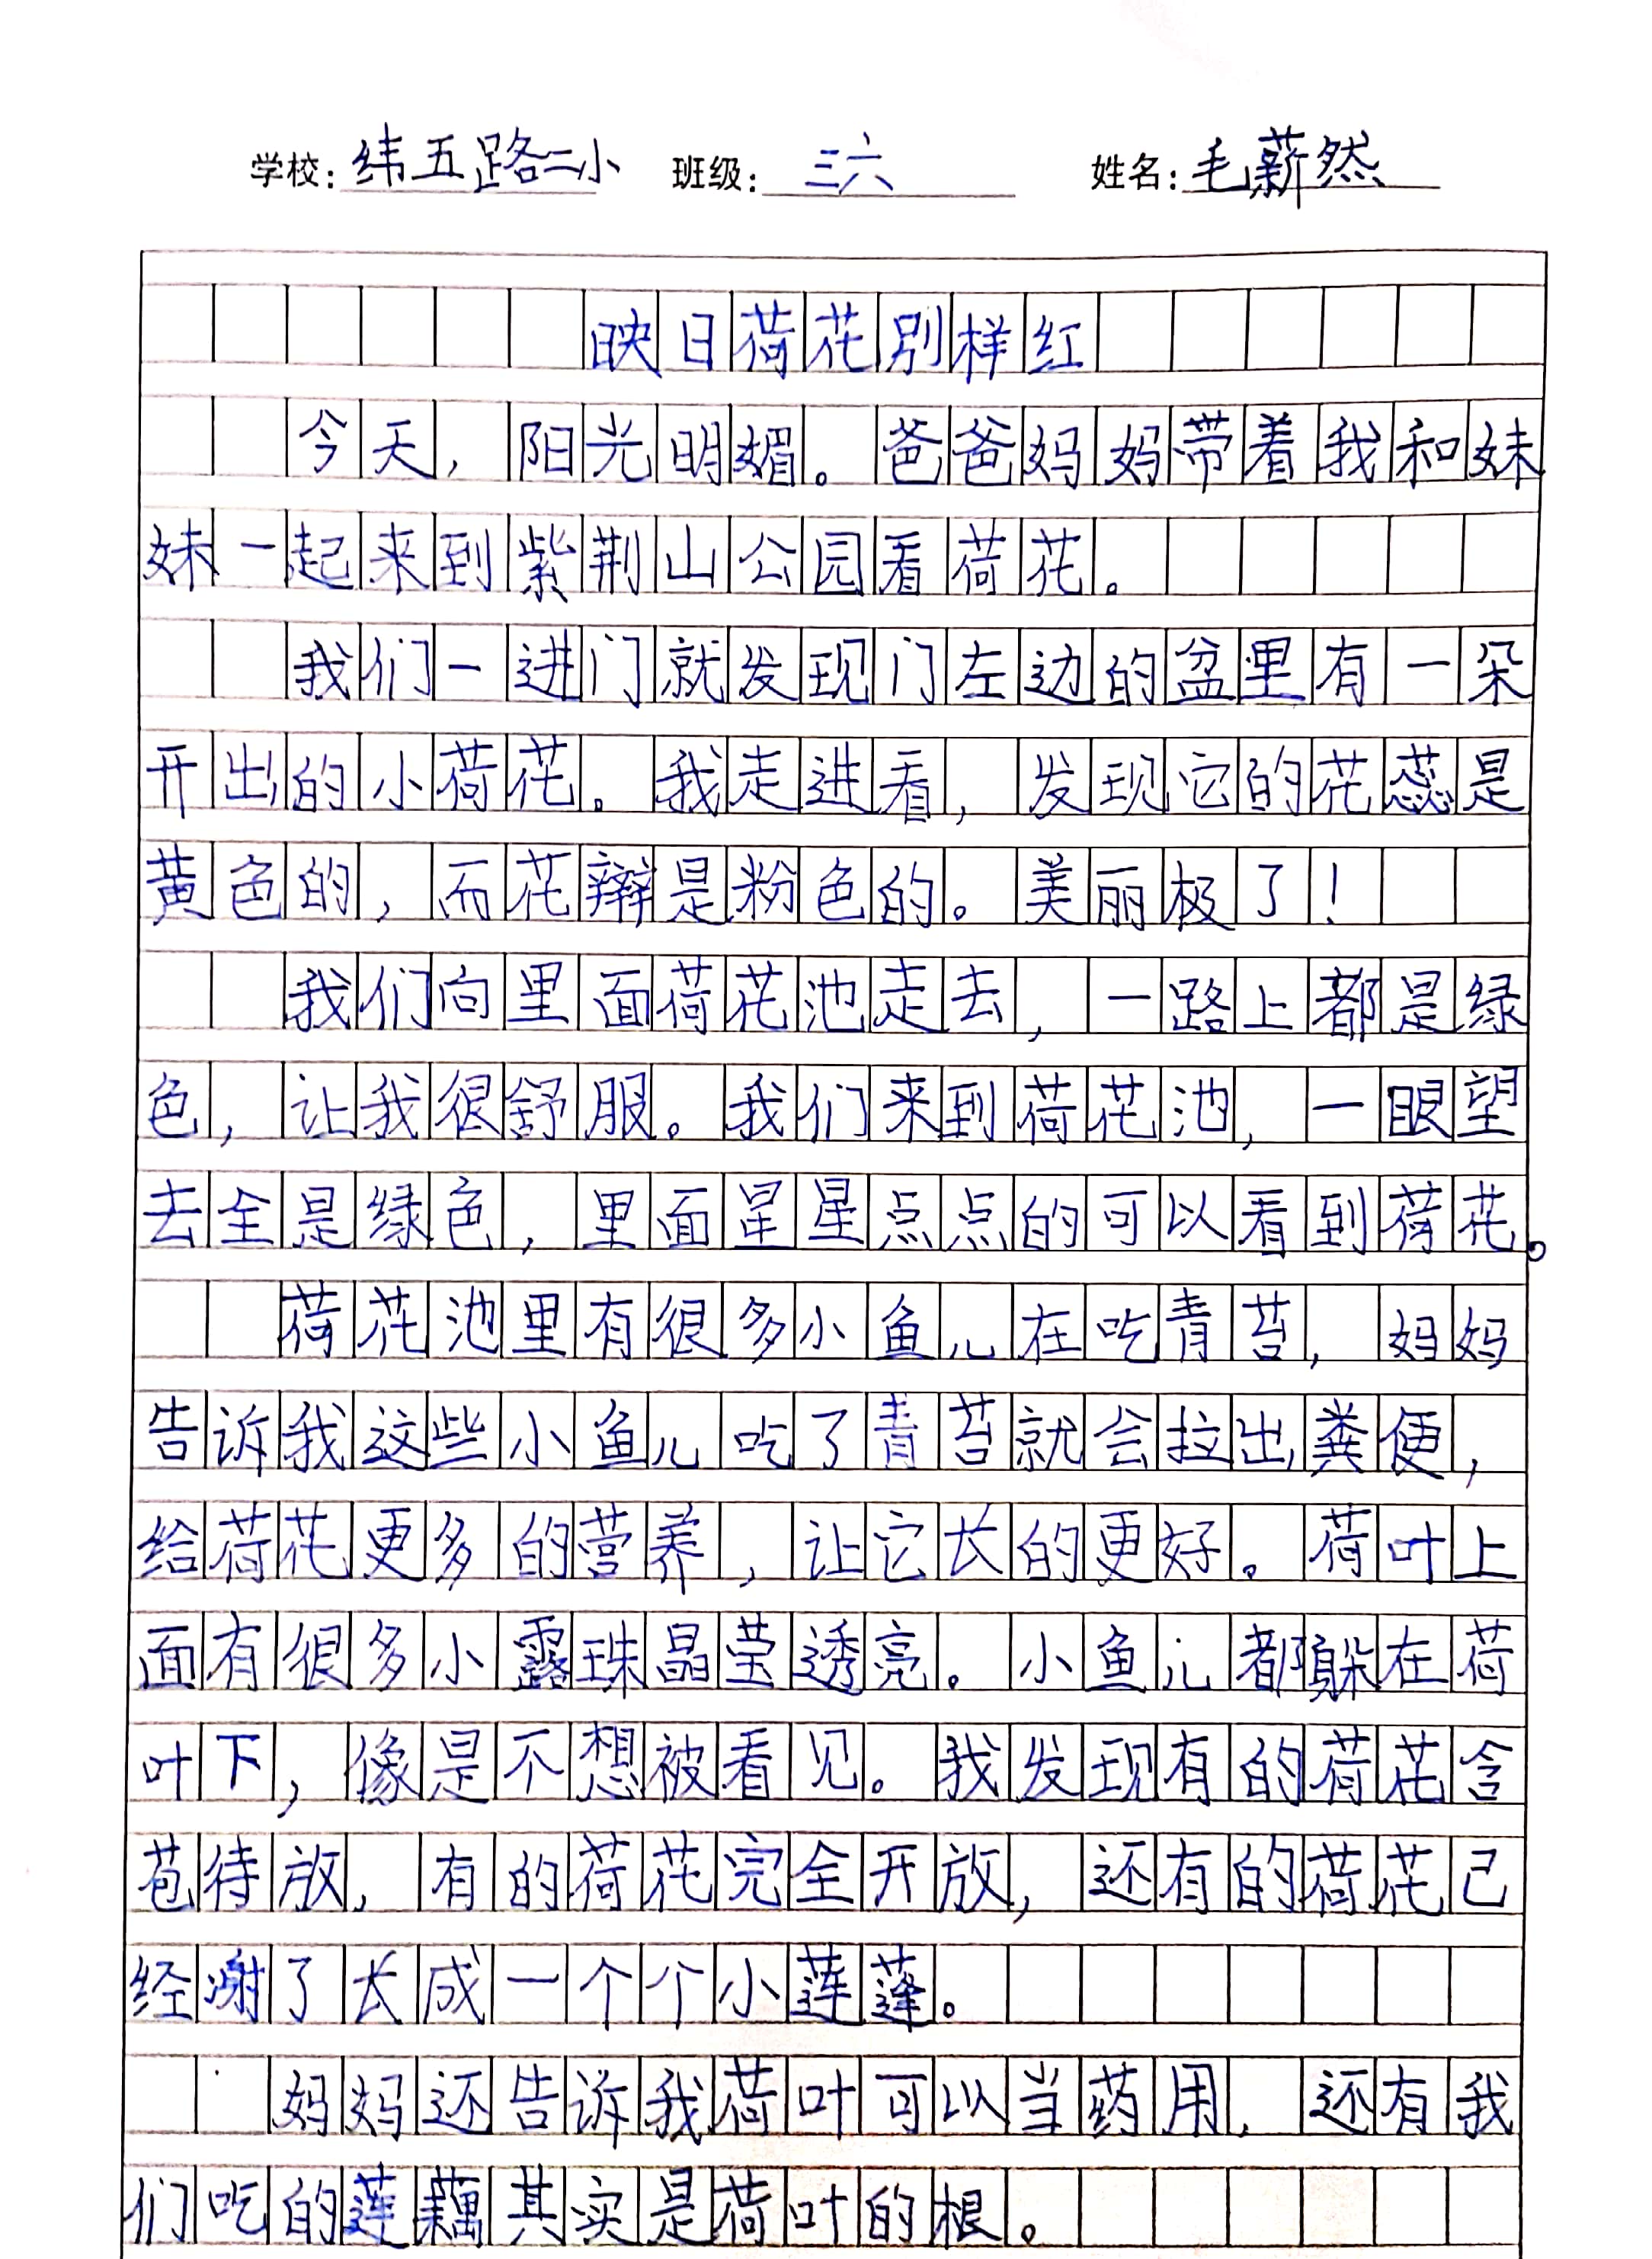 学校：纬五路二小 班级：三六 姓名：毛薪然
映日荷花别样红
今天，阳光明媚。爸爸妈妈带着我和妹
妹一起来到紫荆山公园看荷花。
我们一进门就发现门左边的盆里有一朵
开出的小荷花。我走进看，发现它的花蕊是
黄色的，而花辩是粉色的。美丽极了！
我们向里面荷花池走去，一路上都是绿
色，让我很舒服。我们来到荷花池，一眼望
去全是绿色，里面星星点点的可以看到荷花。
荷花池里有很多小鱼儿在吃青苔，妈妈
告诉我这些小鱼儿吃了青苔就会拉出粪便，
给荷花更多的营养，让它长的更好。荷叶上
面有很多小露珠晶莹透亮。小鱼儿都躲在荷
叶下，像是不想被看见。我发现有的荷花含
苞待放，有的荷花完全开放，还有的荷花已
经谢了长成一个个小莲蓬。
妈妈还告诉我荷叶可以当药用，还有我
们吃的莲藕其实是荷叶的根。